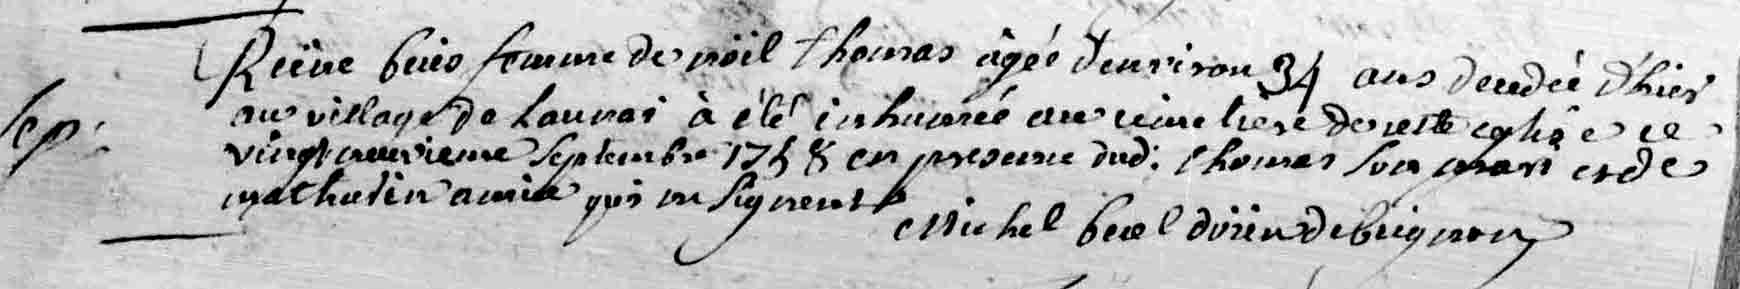 Reëne femme de noël thomas âgée denviron 34 ans decedée d'hier
Sep:
au village de Launai à été inhumée au cimetiere de cette eglise ce
vingt neuvieme Septembre 1758 en presence dud: thomas son mari et de
mathurin qui ne signent
Michel doïen de beignon